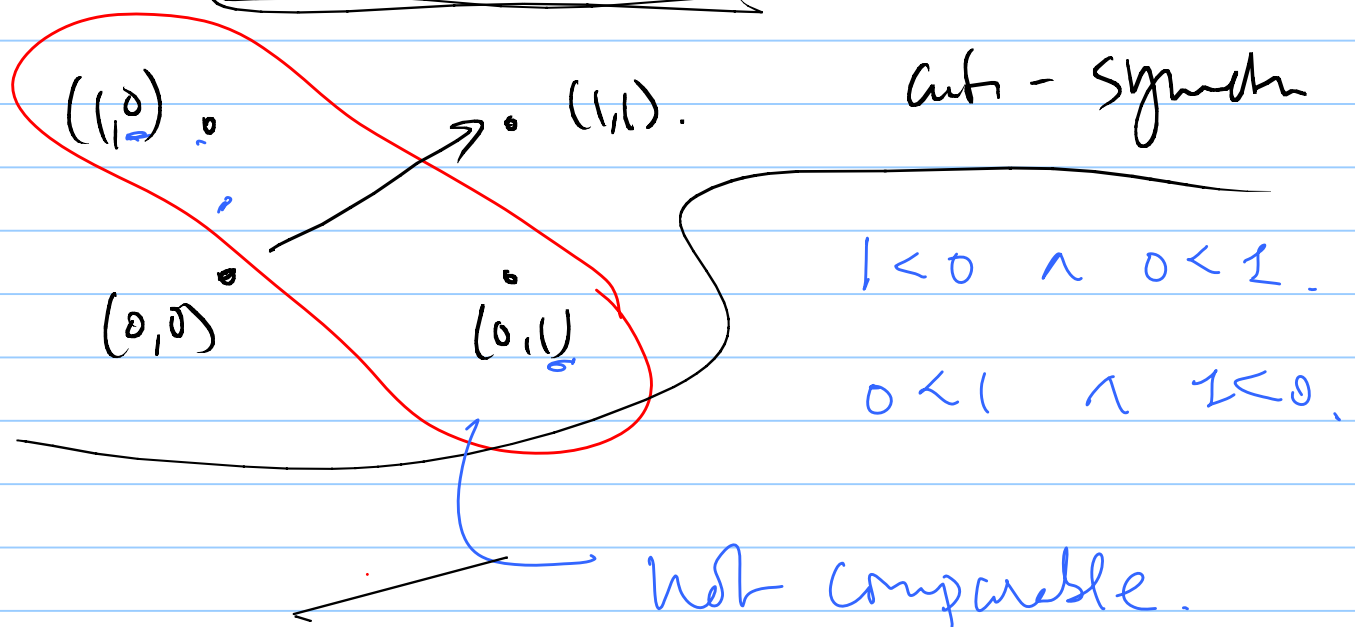 (1,0) (1,1).
anti - symm
(0,0) (0,1)
1 < 0 ∧ 0 < 1.
0 < 1 ∧ 1 < 0.
not comparable.